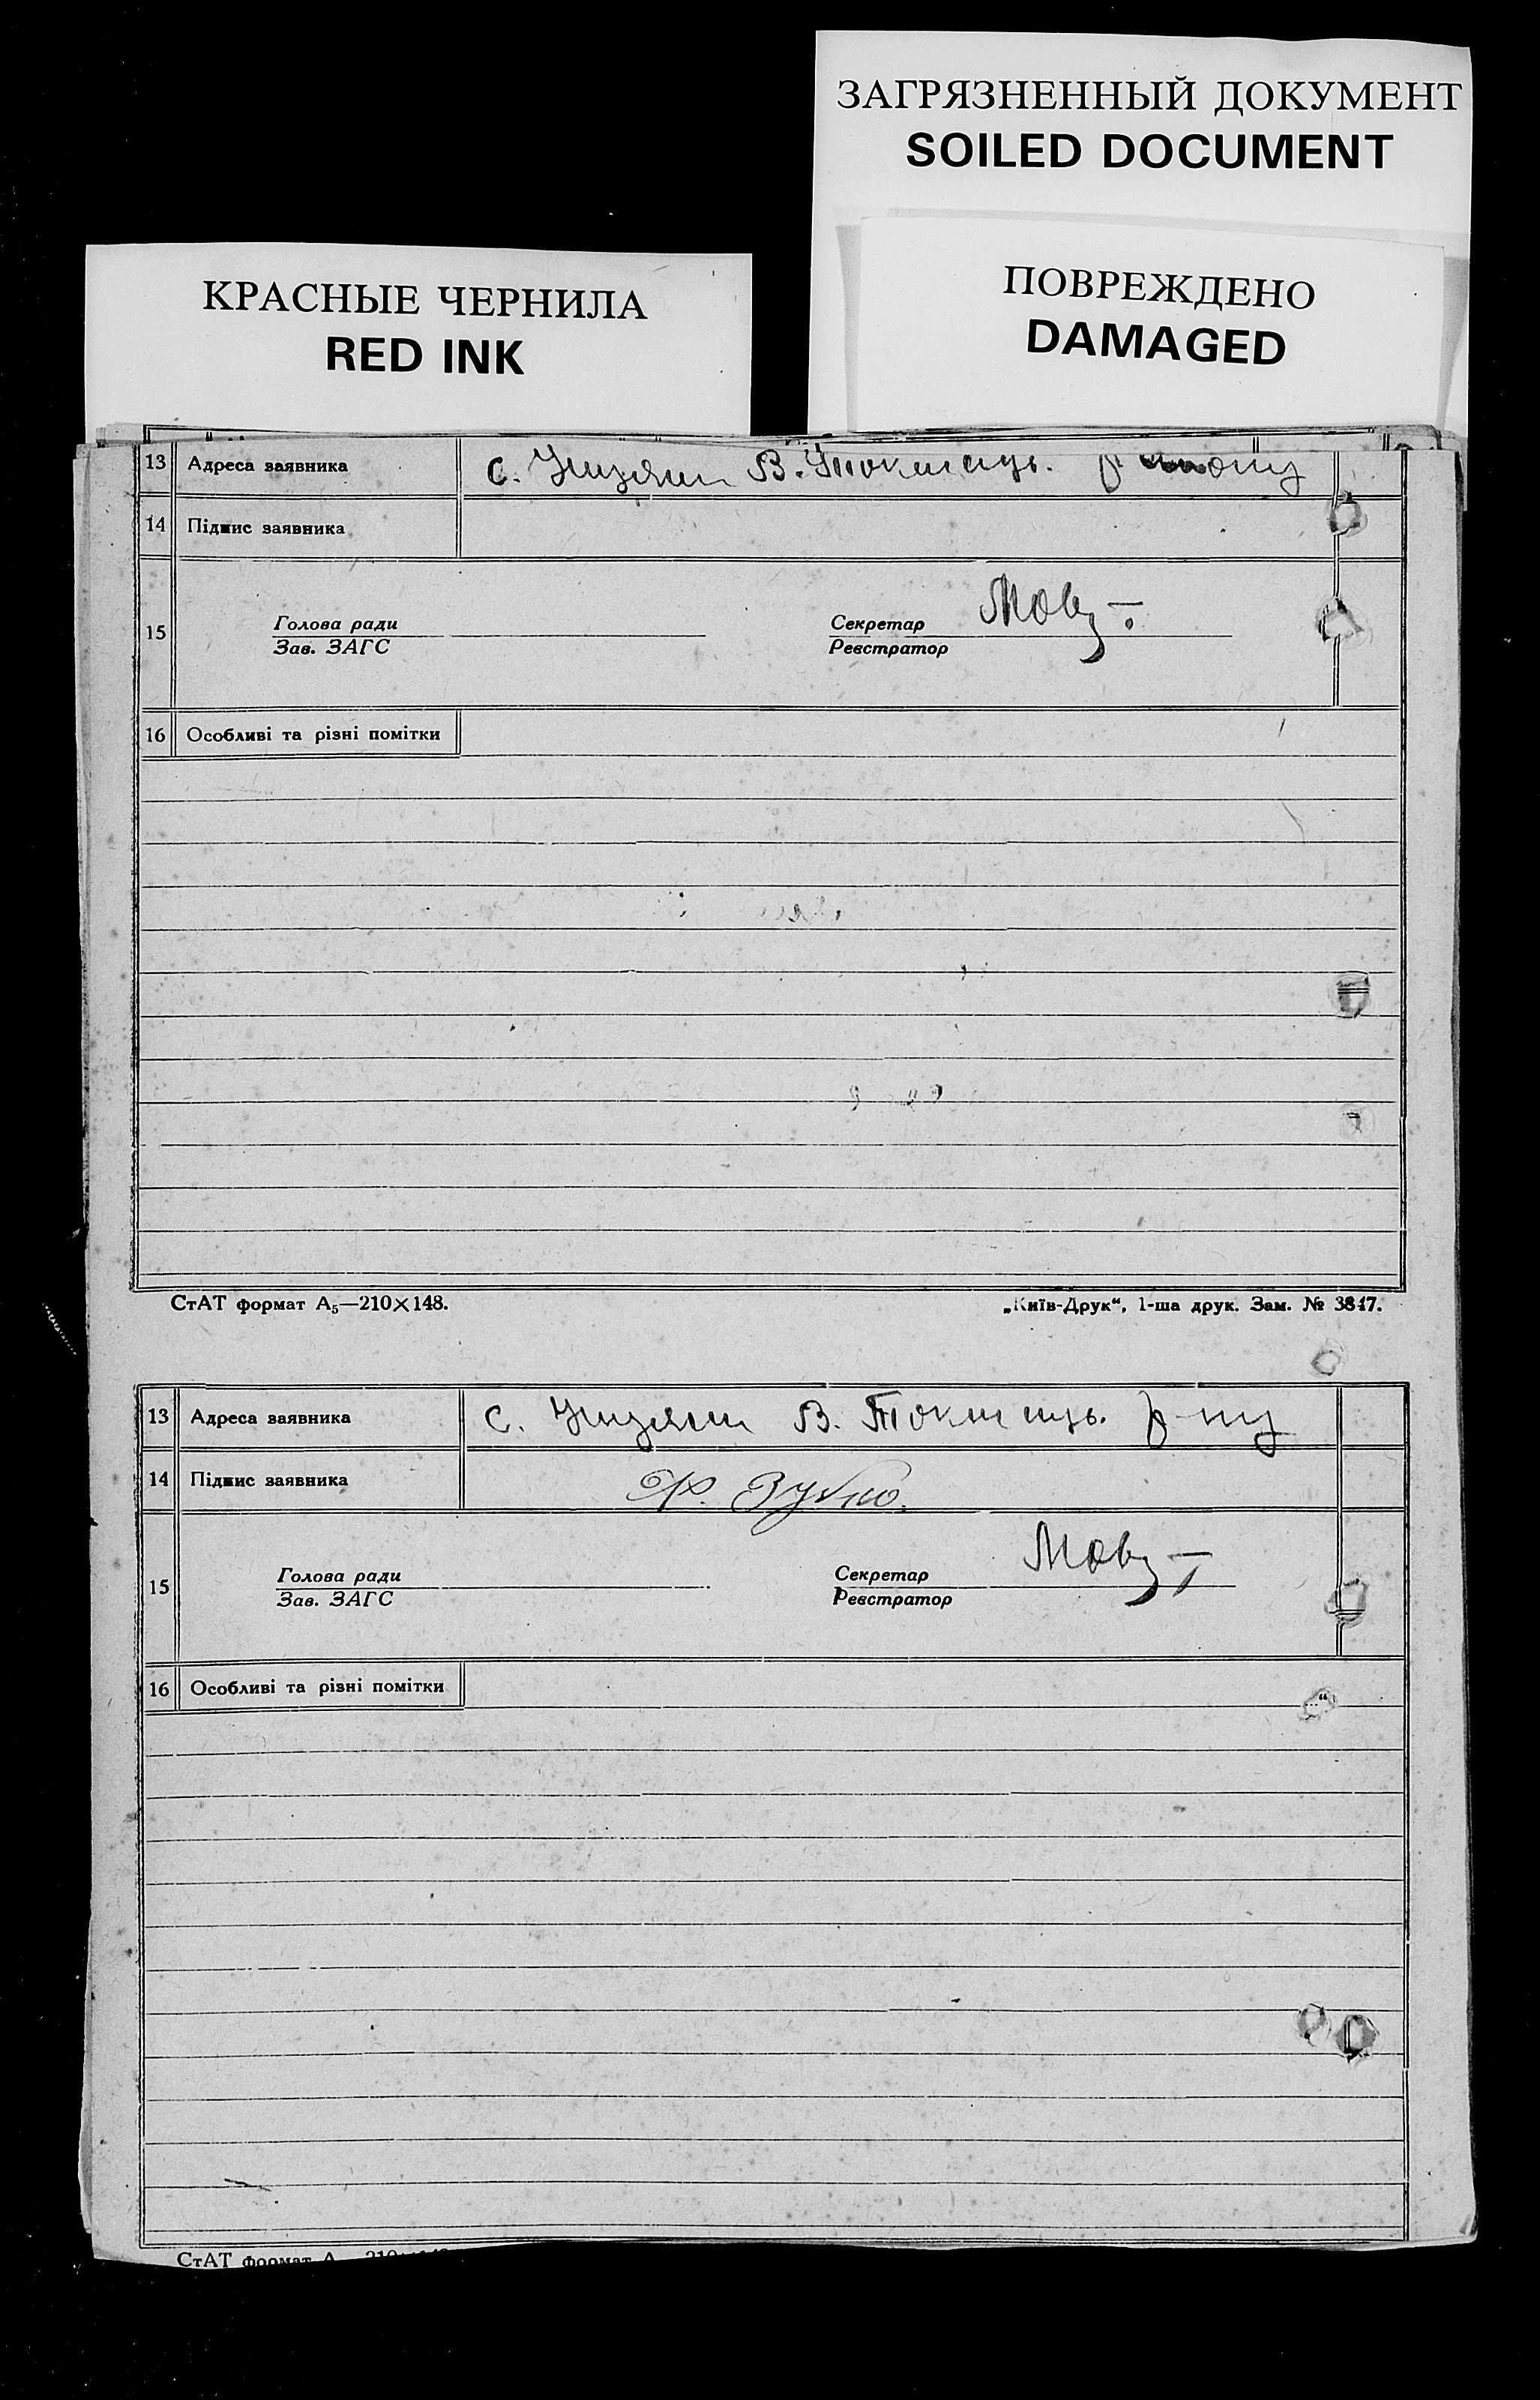 ЗАГРЯЗНЕННЫЙ ДОКУМЕНТ
SOILED DOCUMENT
ПОВРЕЖДЕНО
DAMAGED
КРАСНЫЕ ЧЕРНИЛА
RED INK
13 Адреса заявника с. В. Токмацьк.
14 Підпис заявника
15 Голова ради Секретар
Зав. ЗАГС Реєстратор
16 Особливі та різні помітки
СтАТ формат А₅—210×148. „Київ-Друк“, 1-ша друк. Зам. № 3847.
13 Адреса заявника с. В. Токмацьк. р-ну
14 Підпис заявника
15 Голова ради Секретар
Зав. ЗАГС Реєстратор
16 Особливі та різні помітки
СтАТ формат А